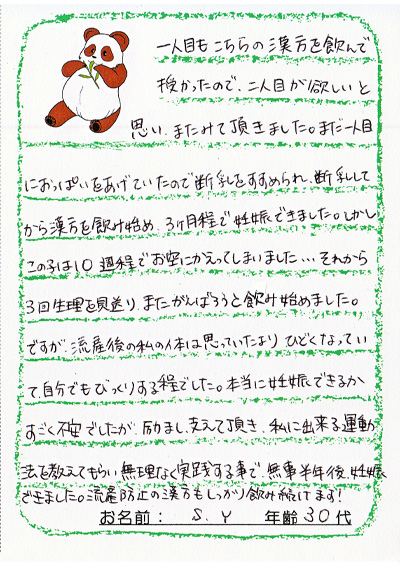 一人目もこちらの漢方を飲んで
授かったので、二人目が欲しいと
思い、またみて頂きました。まだ一人目
におっぱいをあげていたので断乳をすすめられ、断乳して
から漢方を飲み始め、3ヶ月程で妊娠できました。しかし
この子は10週程でお空にかえってしまいました…それから
3回生理を見送り、またがんばろうと飲み始めました。
ですが、流産後の私の体は思っていたよりひどくなってい
て、自分でもびっくりする程でした。本当に妊娠できるか
すごく不安でしたが、励まし、支えて頂き、私に出来る運動
法を教えてもらい、無理なく実践する事で、無事半年後、妊娠
できました。流産防止の漢方もしっかり飲み続けます!
お名前: S.Y 年齢30代